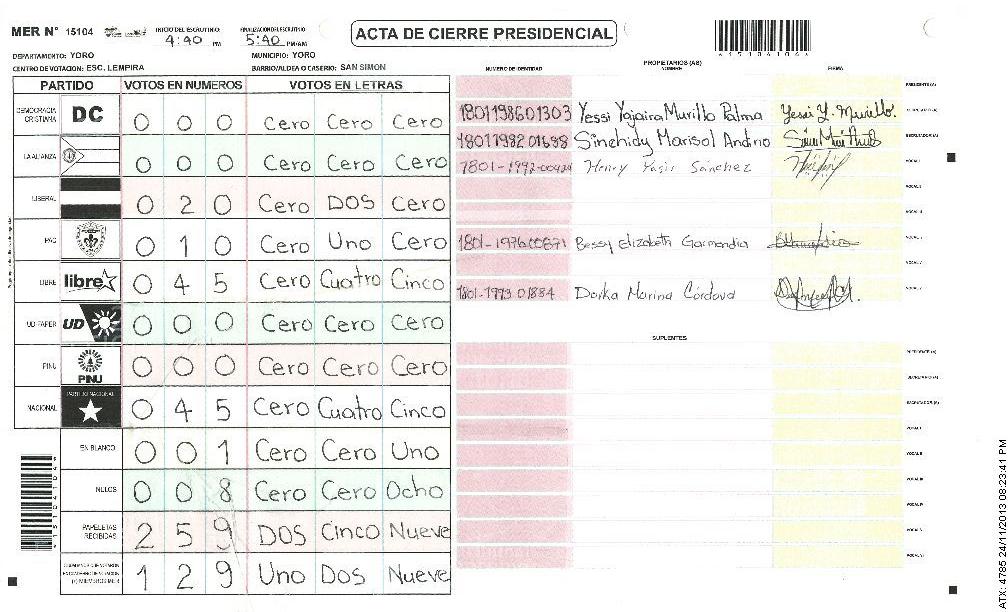 MER N° 15104 INICIO DEL ESCRUTINIO: 4:40 PM FINALIZACION DEL ESCRUTINIO 5:40 PM/AM ACTA DE CIERRE PRESIDENCIAL
DEPARTAMENTO: YORO MUNICIPIO: YORO
CENTRO DE VOTACION: ESC. LEMPIRA BARRIO/ALDEA O CASERIO: SAN SIMON
PARTIDO VOTOS EN NUMEROS VOTOS EN LETRAS
DEMOCRACIA CRISTIANA DC 0 0 0 Cero Cero Cero
LA ALIANZA 0 0 0 Cero Cero Cero
LIBERAL 0 2 0 Cero DOS Cero
PAC 0 1 0 Cero Uno Cero
LIBRE libre 0 4 5 Cero Cuatro Cinco
UD FAPER UD 0 0 0 Cero Cero Cero
PINU PINU 0 0 0 Cero Cero Cero
NACIONAL PARTIDO NACIONAL 0 4 5 Cero Cuatro Cinco
EN BLANCO 0 0 1 Cero Cero Uno
NULOS 0 0 8 Cero Cero Ocho
PAPELETAS RECIBIDAS 2 5 9 DOS Cinco Nueve
1 2 9 Uno Dos Nueve
PROPIETARIOS (AS)
NUMERO DE IDENTIDAD NOMBRE FIRMA
PRESIDENTE (A)
1801198601303 Yessi Yajaira Murillo Palma Yessi Y. Murillo. SECRETARIO (A)
Sinehidy Marisol Andino ESCRUTADOR (A)
Henry Yasir Sanchez VOCAL I
VOCAL II
VOCAL III
Bessy Elizabeth Garmendia
VOCAL V
1801-1993-01884 Dorka Marina Córdova
SUPLENTES
PRESIDENTE (A)
SECRETARIO (A)
ESCRUTADOR (A)
VOCAL I
VOCAL II
VOCAL III
VOCAL IV
VOCAL V
VOCAL VI
ATX: 4785 24/11/2013 08:23:41 PM